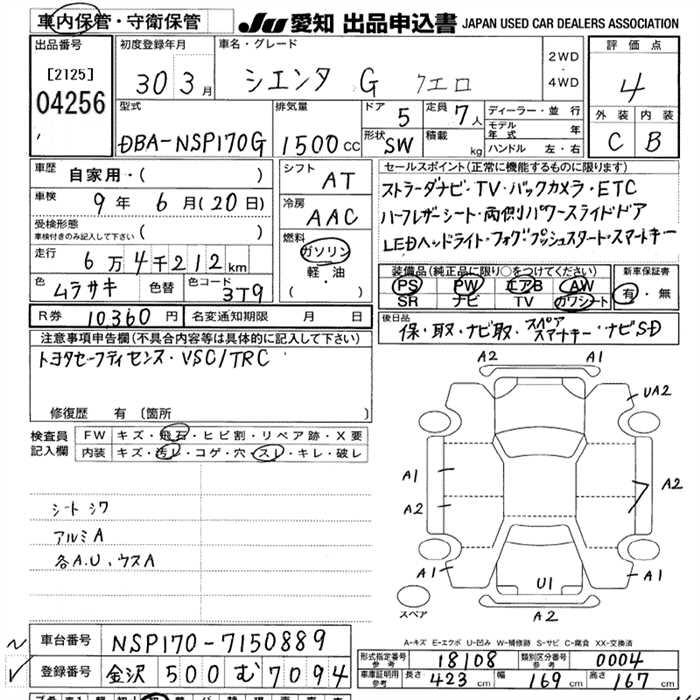 車内保管・守衛保管 JU 愛知 出品申込書 JAPAN USED CAR DEALERS ASSOCIATION
出品番号 [2125] 04256
初度登録年月 30 3月
車名・グレード シエンタ G クエロ
2WD・4WD
評価点 4
外装 C 内装 B
型式 DBA-NSP170G
排気量 1500cc
ドア 5
定員 7人
形状 SW
積載 kg
ディーラー・並行
モデル年式 年
ハンドル 左・右
車歴 自家用・( )
車検 9年 6月(20日)
受検形態 車検付きのみ記入して下さい ( )
走行 6万4千212km
色 ムラサキ 色替 色コード 3T9
シフト AT
冷房 AAC
燃料 ガソリン 軽・油 ・( )
R券 10,360円 名変通知期限 月 日
セールスポイント(正常に機能するものに限ります)
ストラーダナビ・TV・バックカメラ・ETC
ハーフレザーシート・両側パワースライドドア
LEDヘッドライト・フォグ・プッシュスタート・スマートキー
装備品(純正品に限り○をつけてください)
PS PW エアB AW
SR ナビ TV カワシート
新車保証書 有・無
後日品 保・取・ナビ取・スペアスマートキー・ナビSD
注意事項申告欄(不具合内容等は具体的に記入して下さい)
トヨタセーフティセンス・VSC/TRC
修復歴 有 〔箇所 〕
検査員記入欄
FW キズ・飛石・ヒビ割・リペア跡・X要
内装 キズ・汚レ・コゲ・穴・スレ・キレ・破レ
シートシワ
アルミA
各A.U、ウスA
A2 A1
UA2
A1 A2
A2
A1 U1 A1
A2
スペア
A-キズ E-エクボ U-凹み W-補修跡 S-サビ C-腐食 XX-交換済
車台番号 NSP170-7150889
登録番号 金沢 500 む 7094
形式指定番号 参考 18108 類別区分番号 参考 0004
車庫証明用 参考 長さ 423cm 幅 169cm 高さ 167cm